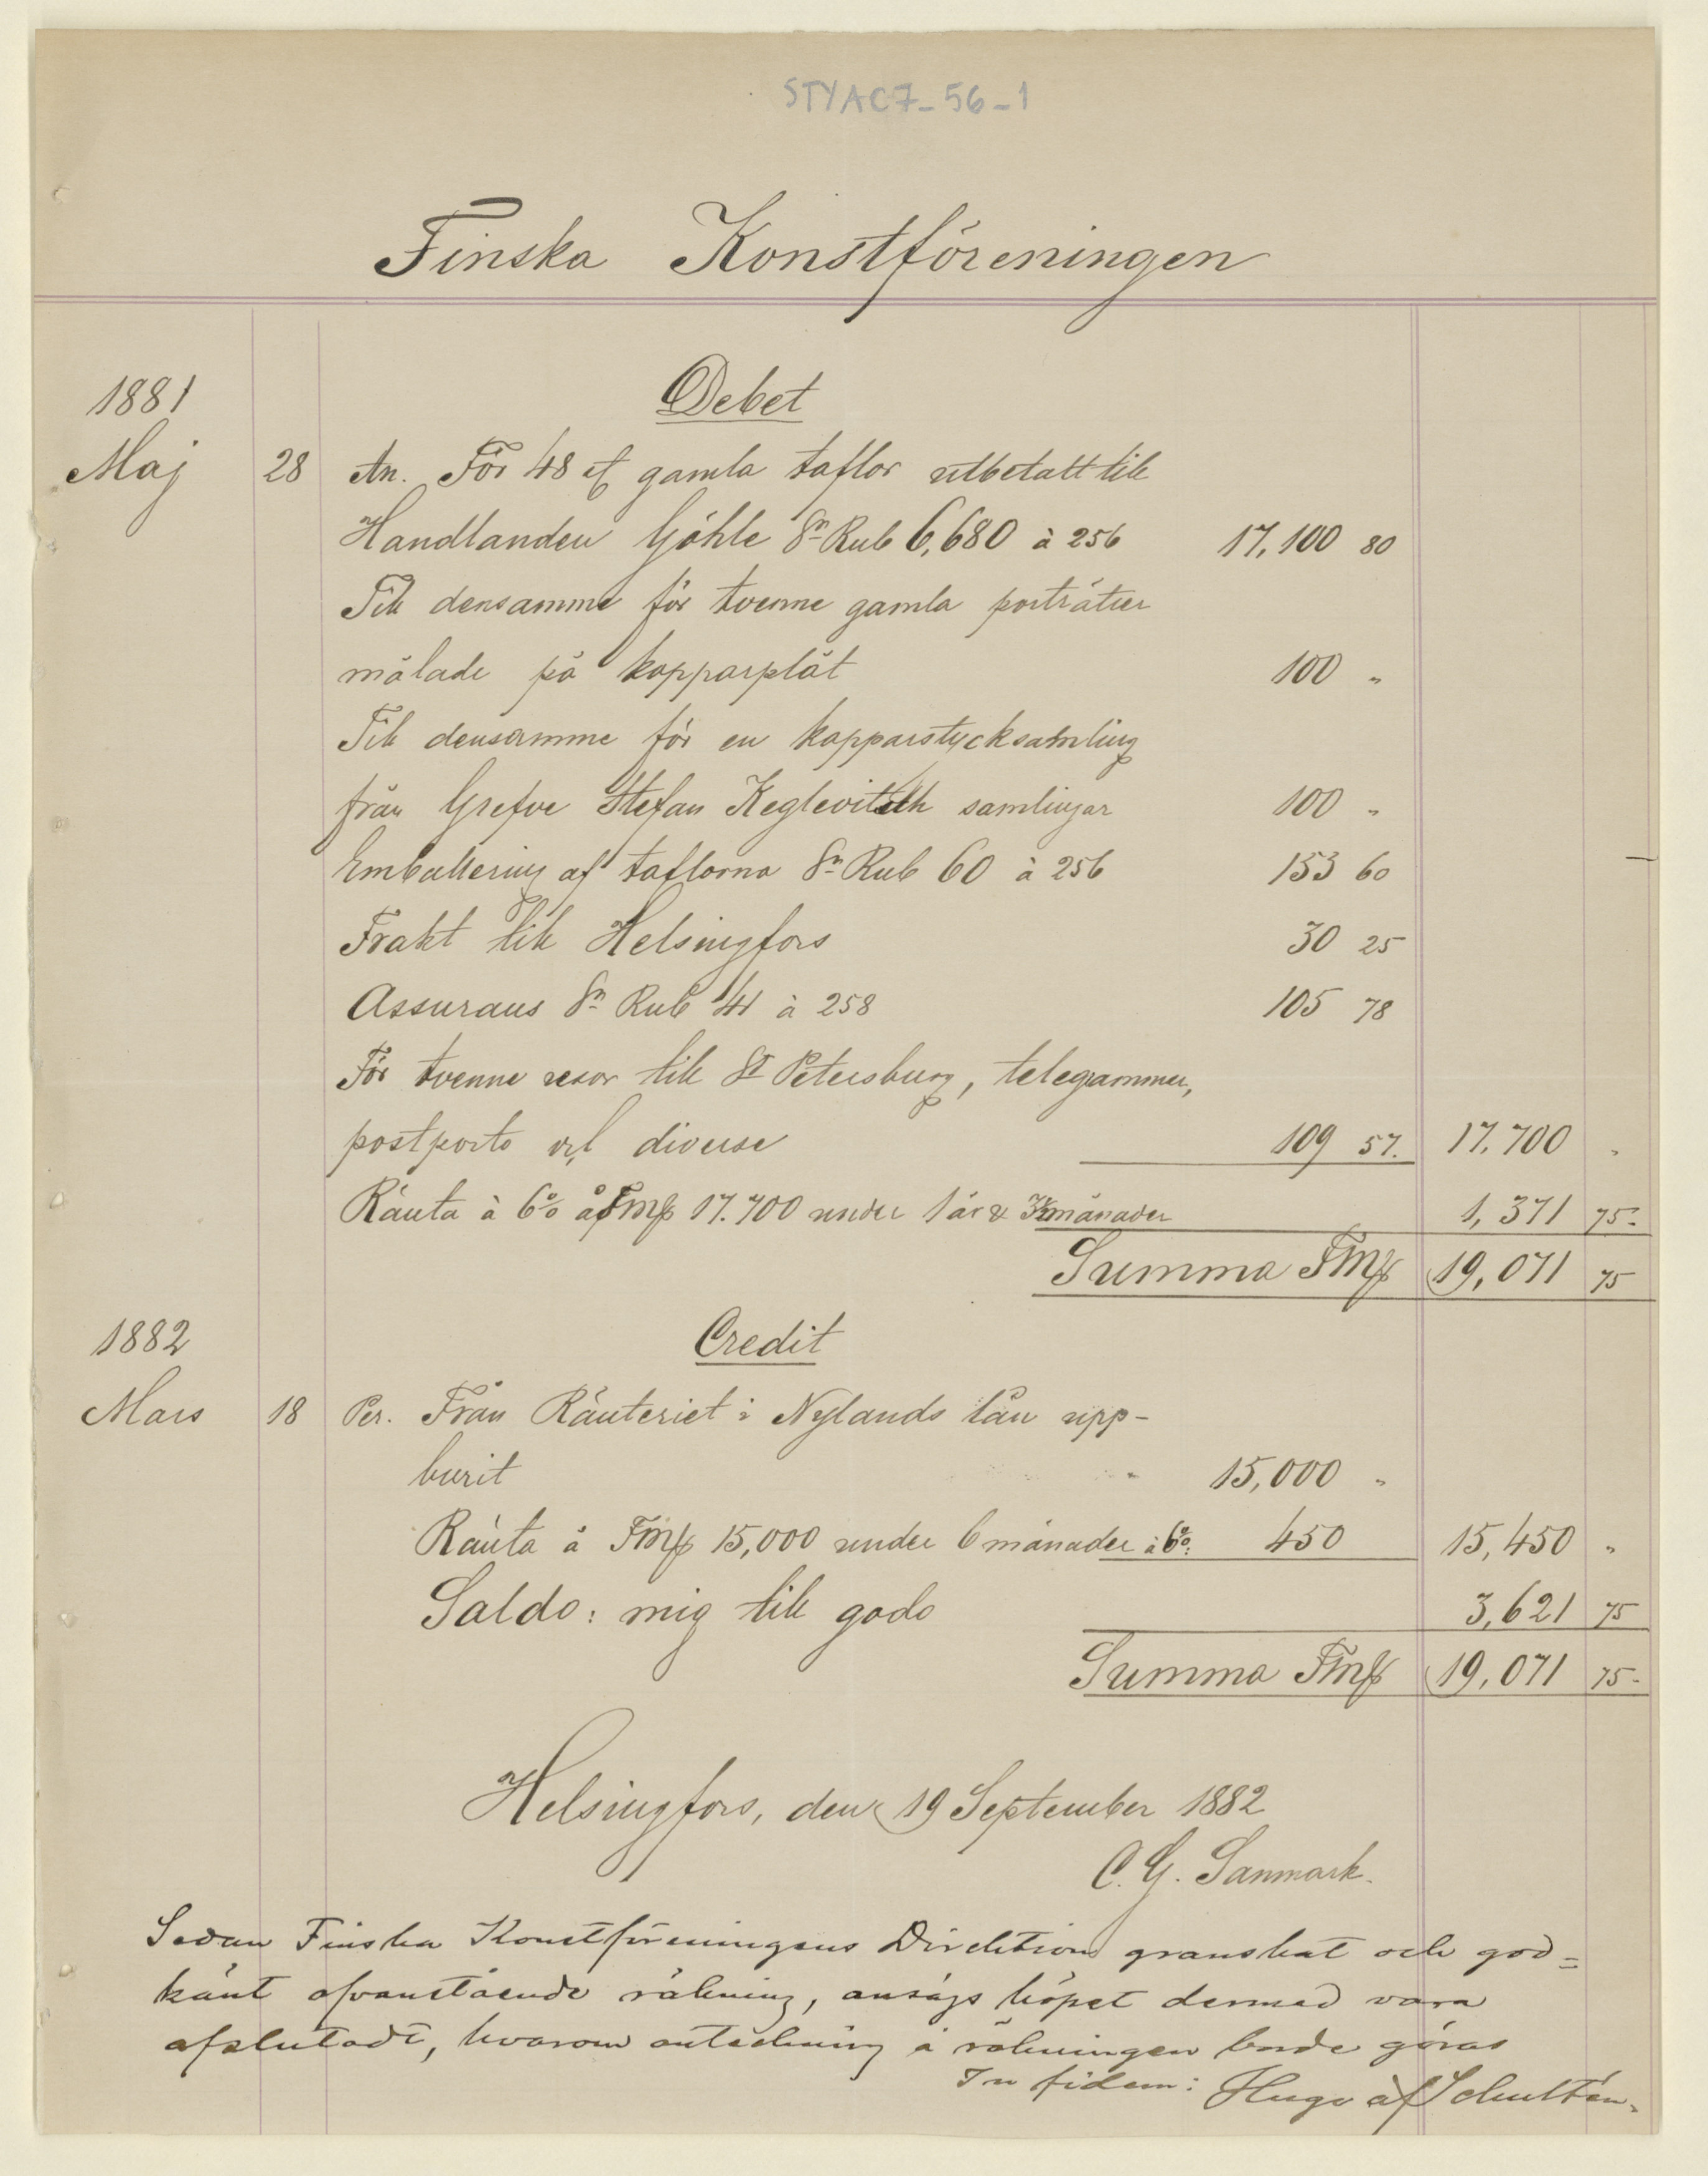 STYAC7-56-1
Finska Konstföreningen
Debet
1881
Maj 28 An. För 48 st gamla taflor utbetalt till
Handlanden Göhle Sr Rub 6,680 à 256 17,100 80
Till densamme för tvenne gamla porträtter
målade på kopparplåt 100 "
Till densamme för en kopparstycksamling
från Grefve Stefan Keglevitsch samlingar 100 "
Emballering af taflorna Sr Rub 60 à 256 153 60
Frakt till Helsingfors 30 25
Assurans Sr Rub 41 à 258 105 78
För tvenne resor till St Petersburg, telegrammer,
postporto och diverse 109 57. 17,700 "
Ränta à 6% å Fmk 17.700 under 1 år & månader 1,371 75.
Summa Fmk 19,071 75
1882 Credit
Mars 18 Per. Från Ränteriet i Nylands län upp-
burit " 15,000 "
Ränta å Fmk 15,000 under 6 månader à 6%: 450 15,450 "
Saldo: mig till godo 3,621 75
Summa Fmk 19,071 75-
Helsingfors, den 19 September 1882
C. G. Sanmark.
Sedan Finska Konstföreningens Direktion granskat och god=
känt ofvanstående räkning, ansågs köpet dermed vara
afslutadt, hvarom anteckning å räkningen borde göras
In fidem: Hugo af Schultén.